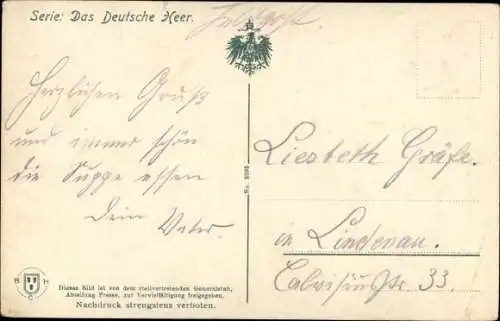 Serie: Das Deutsche Heer.
Feldpost.
Herzlichen Gruß
und immer schön
die Suppe essen
Dein Vater.
No. 2609
Liesbeth Gräfe.
in Lindenau.
Calvisiusstr. 33.
B H
C
Dieses Bild ist von dem stellvertretenden Generalstab,
Abteilung Presse, zur Vervielfältigung freigegeben.
Nachdruck strengstens verboten.